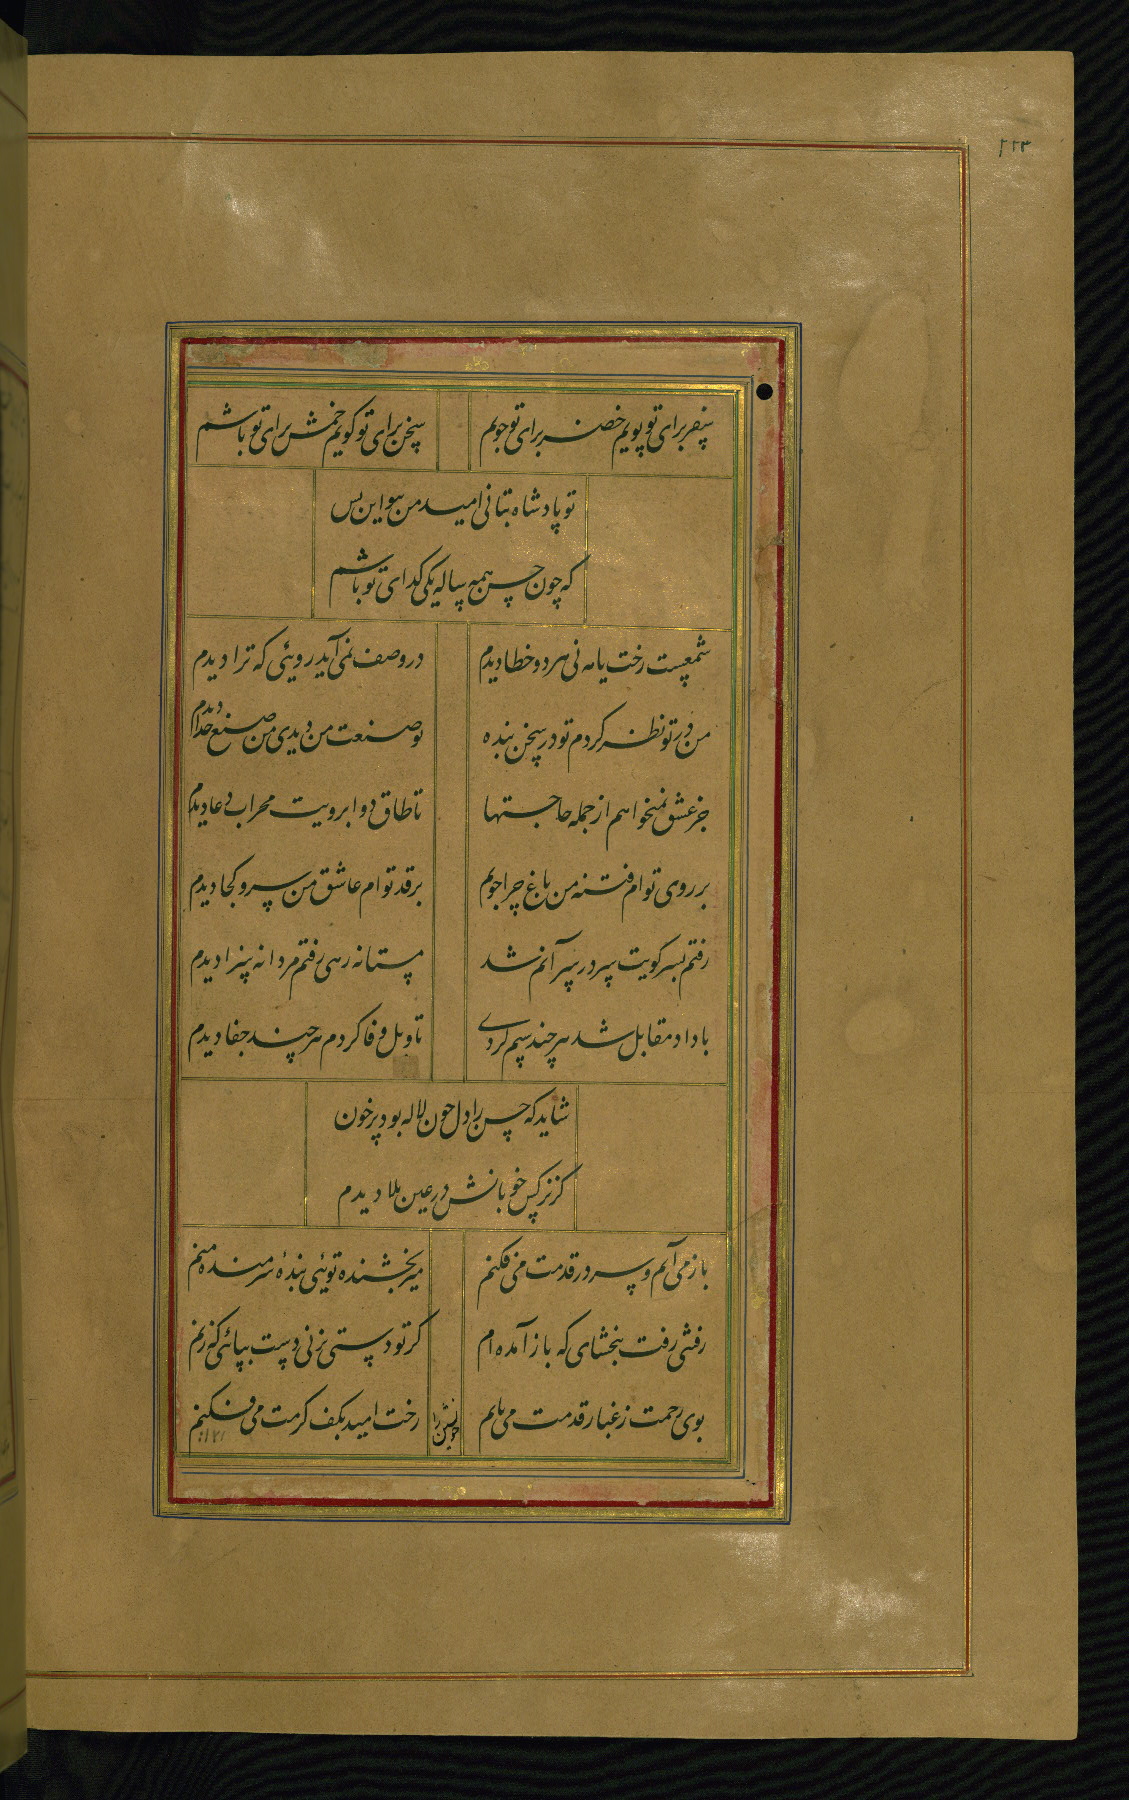 ۲۲۳
سفر برای تو پویم خضر برای تو جویم
سخن برای تو گویم خمش برای تو باشم
تو پادشاه بتانی امید من بتو این بس
که چون حسن همه ساله یکی گدای تو باشم
شمعیست رخت یا مه نی هر دو خطا دیدم
در وصف نمی آید رویئی که ترا دیدم
من در تو نظر کردم تو در سخن بنده
تو صنعت من دیدی من صنع خدا دیدم
جز عشق نمیخواهم از جمله حاجتها
تا طاق دو ابرویت محراب دعا دیدم
بر روی توام فتنه من باغ چرا جویم
بر قد توام عاشق من سرو کجا دیدم
رفتم بسر کویت سر در سر آنم شد
مستانه رهی رفتم مردانه سزا دیدم
با داد مقابل شد هر چند ستم کردی
تاویل وفا کردم هر چند جفا دیدم
شاید که حسن را دل چون لاله بود پر خون
کز نرگس خوبانش در عین بلا دیدم
باز می آیم و سر در قدمت می فکنم
میر بخشنده توئی بندهٔ شرمنده منم
رفتی رفت ببخشای که باز آمده ام
گر تو دستی نزنی دست بپائی که زنم
بوی رحمت ز غبار قدمت می یابم
رخت امید بکف کرمت می فکنم